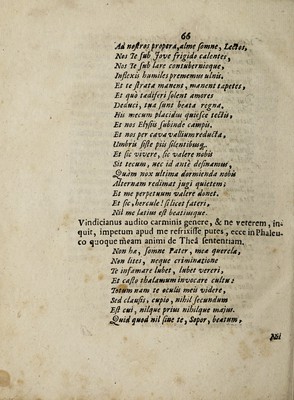 66
Ad nostros propera, alme somne, Lectos,
Nos Te sub Jove frigido calentes,
Nos Te sub lare contubernioque,
Inflexis humiles prememus ulnis.
Et te strata manent, manent tapetes,
Et quò tadiferi solent amores
Deduci, tua sunt beata regna.
His mecum placidus quiesce tectis,
Et nos Elysiis subinde campis,
Et nos per cava vallium reducta,
Umbris siste piis silentibusq;
Et sic vivere, sic valere nobis
Sit tecum, nec id antè desinamus,
Quàm nox ultima dormienda nobis
Alternam redimat jugi quietem;
Et me perpetuum valere donet.
Et sic, hercule! silicet fateri,
Nil me latius est beatiusque.
Vindicianus audito carminis genere, & ne veterem, in-
quit, impetum apud me refrixisse putes, ecce in Phaleu-
co quoque meam animi de Theâ sententiam.
Non ha, somne Pater, mea querela,
Non lites, neque criminatione
Te infamare lubet, lubet vereri,
Et casto thalamum invocare cultu:
Totum nam te oculis meis videre,
Sed clausis, cupio, nihil secundum
Est cui, nilque prius nihilque majus.
Quid quod nil sine te, Sopor, beatum,
Nil